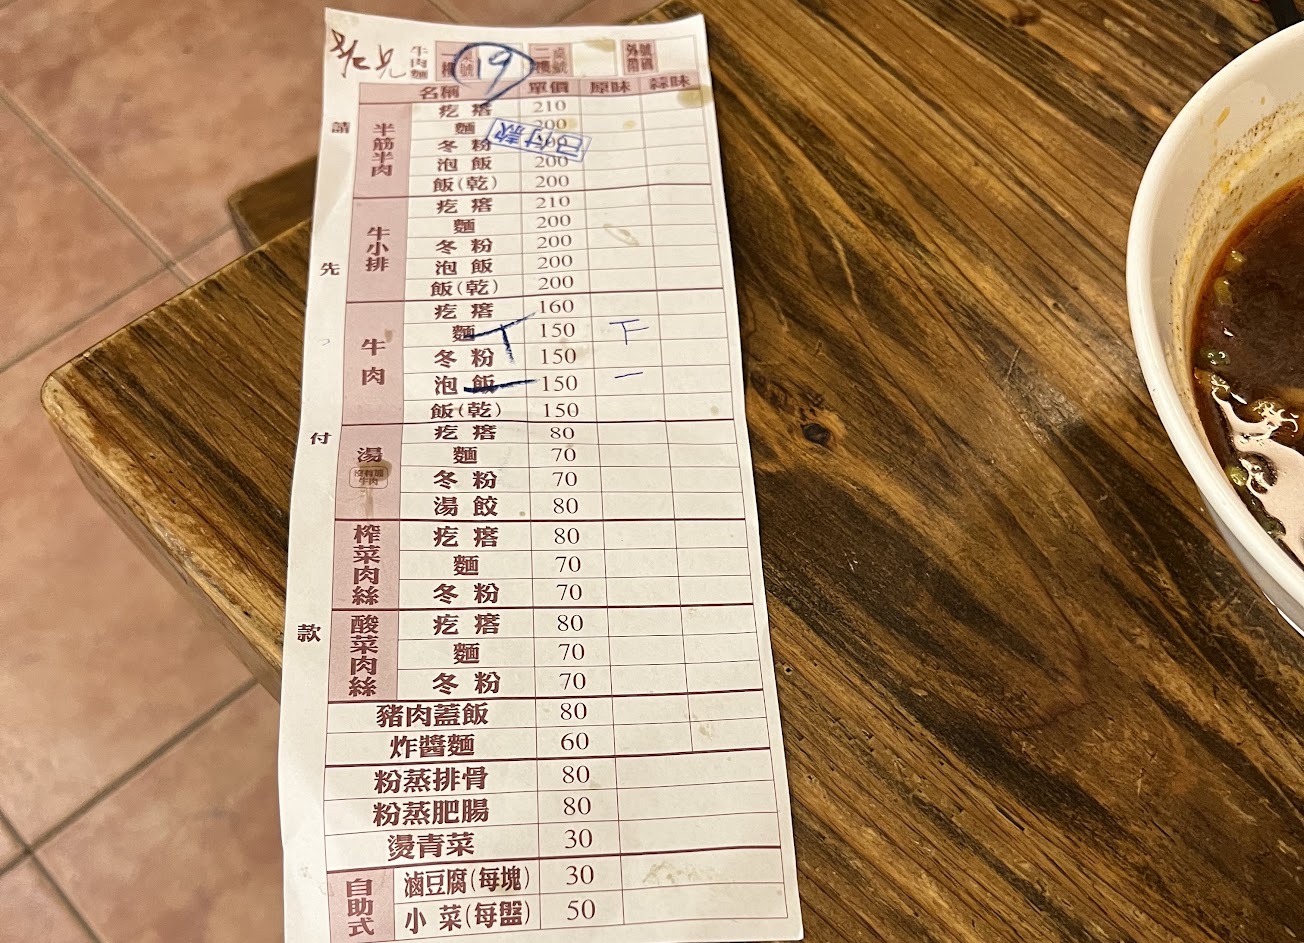 牛肉麵 一樓 桌號 19 二樓 桌號 外帶 號碼
名稱 單價 原味 蒜味
請先付款
已付款
半筋半肉
疙瘩 210
麵 200
冬粉 200
泡飯 200
飯(乾) 200
牛小排
疙瘩 210
麵 200
冬粉 200
泡飯 200
飯(乾) 200
牛肉
疙瘩 160
麵 150 下
冬粉 150
泡飯 150 一
飯(乾) 150
湯
沒有加牛肉
疙瘩 80
麵 70
冬粉 70
湯餃 80
榨菜肉絲
疙瘩 80
麵 70
冬粉 70
酸菜肉絲
疙瘩 80
麵 70
冬粉 70
豬肉蓋飯 80
炸醬麵 60
粉蒸排骨 80
粉蒸肥腸 80
燙青菜 30
自助式
滷豆腐(每塊) 30
小菜(每盤) 50